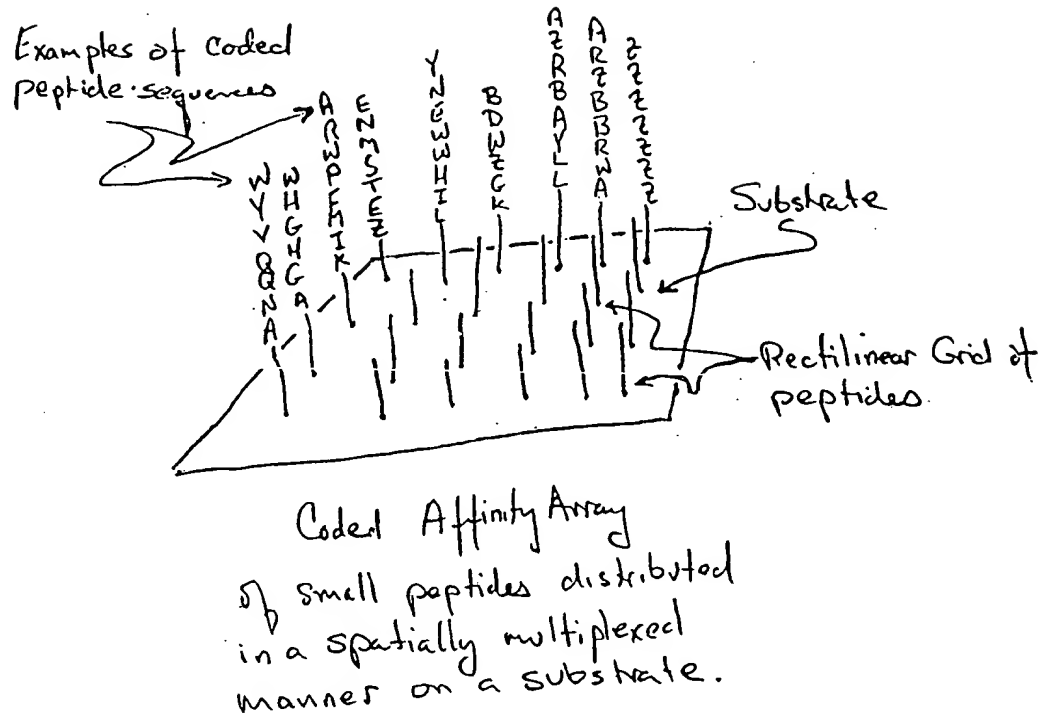 Examples of coded
peptide sequences
WYVQQNA
WHGHGA
ENMSTEZ
BDWEGK
AZRBAYLL
ARZBBRWA
Substrate
Rectilinear Grid of
peptides.
Coded Affinity Array
of small peptides distributed
in a spatially multiplexed
manner on a substrate.